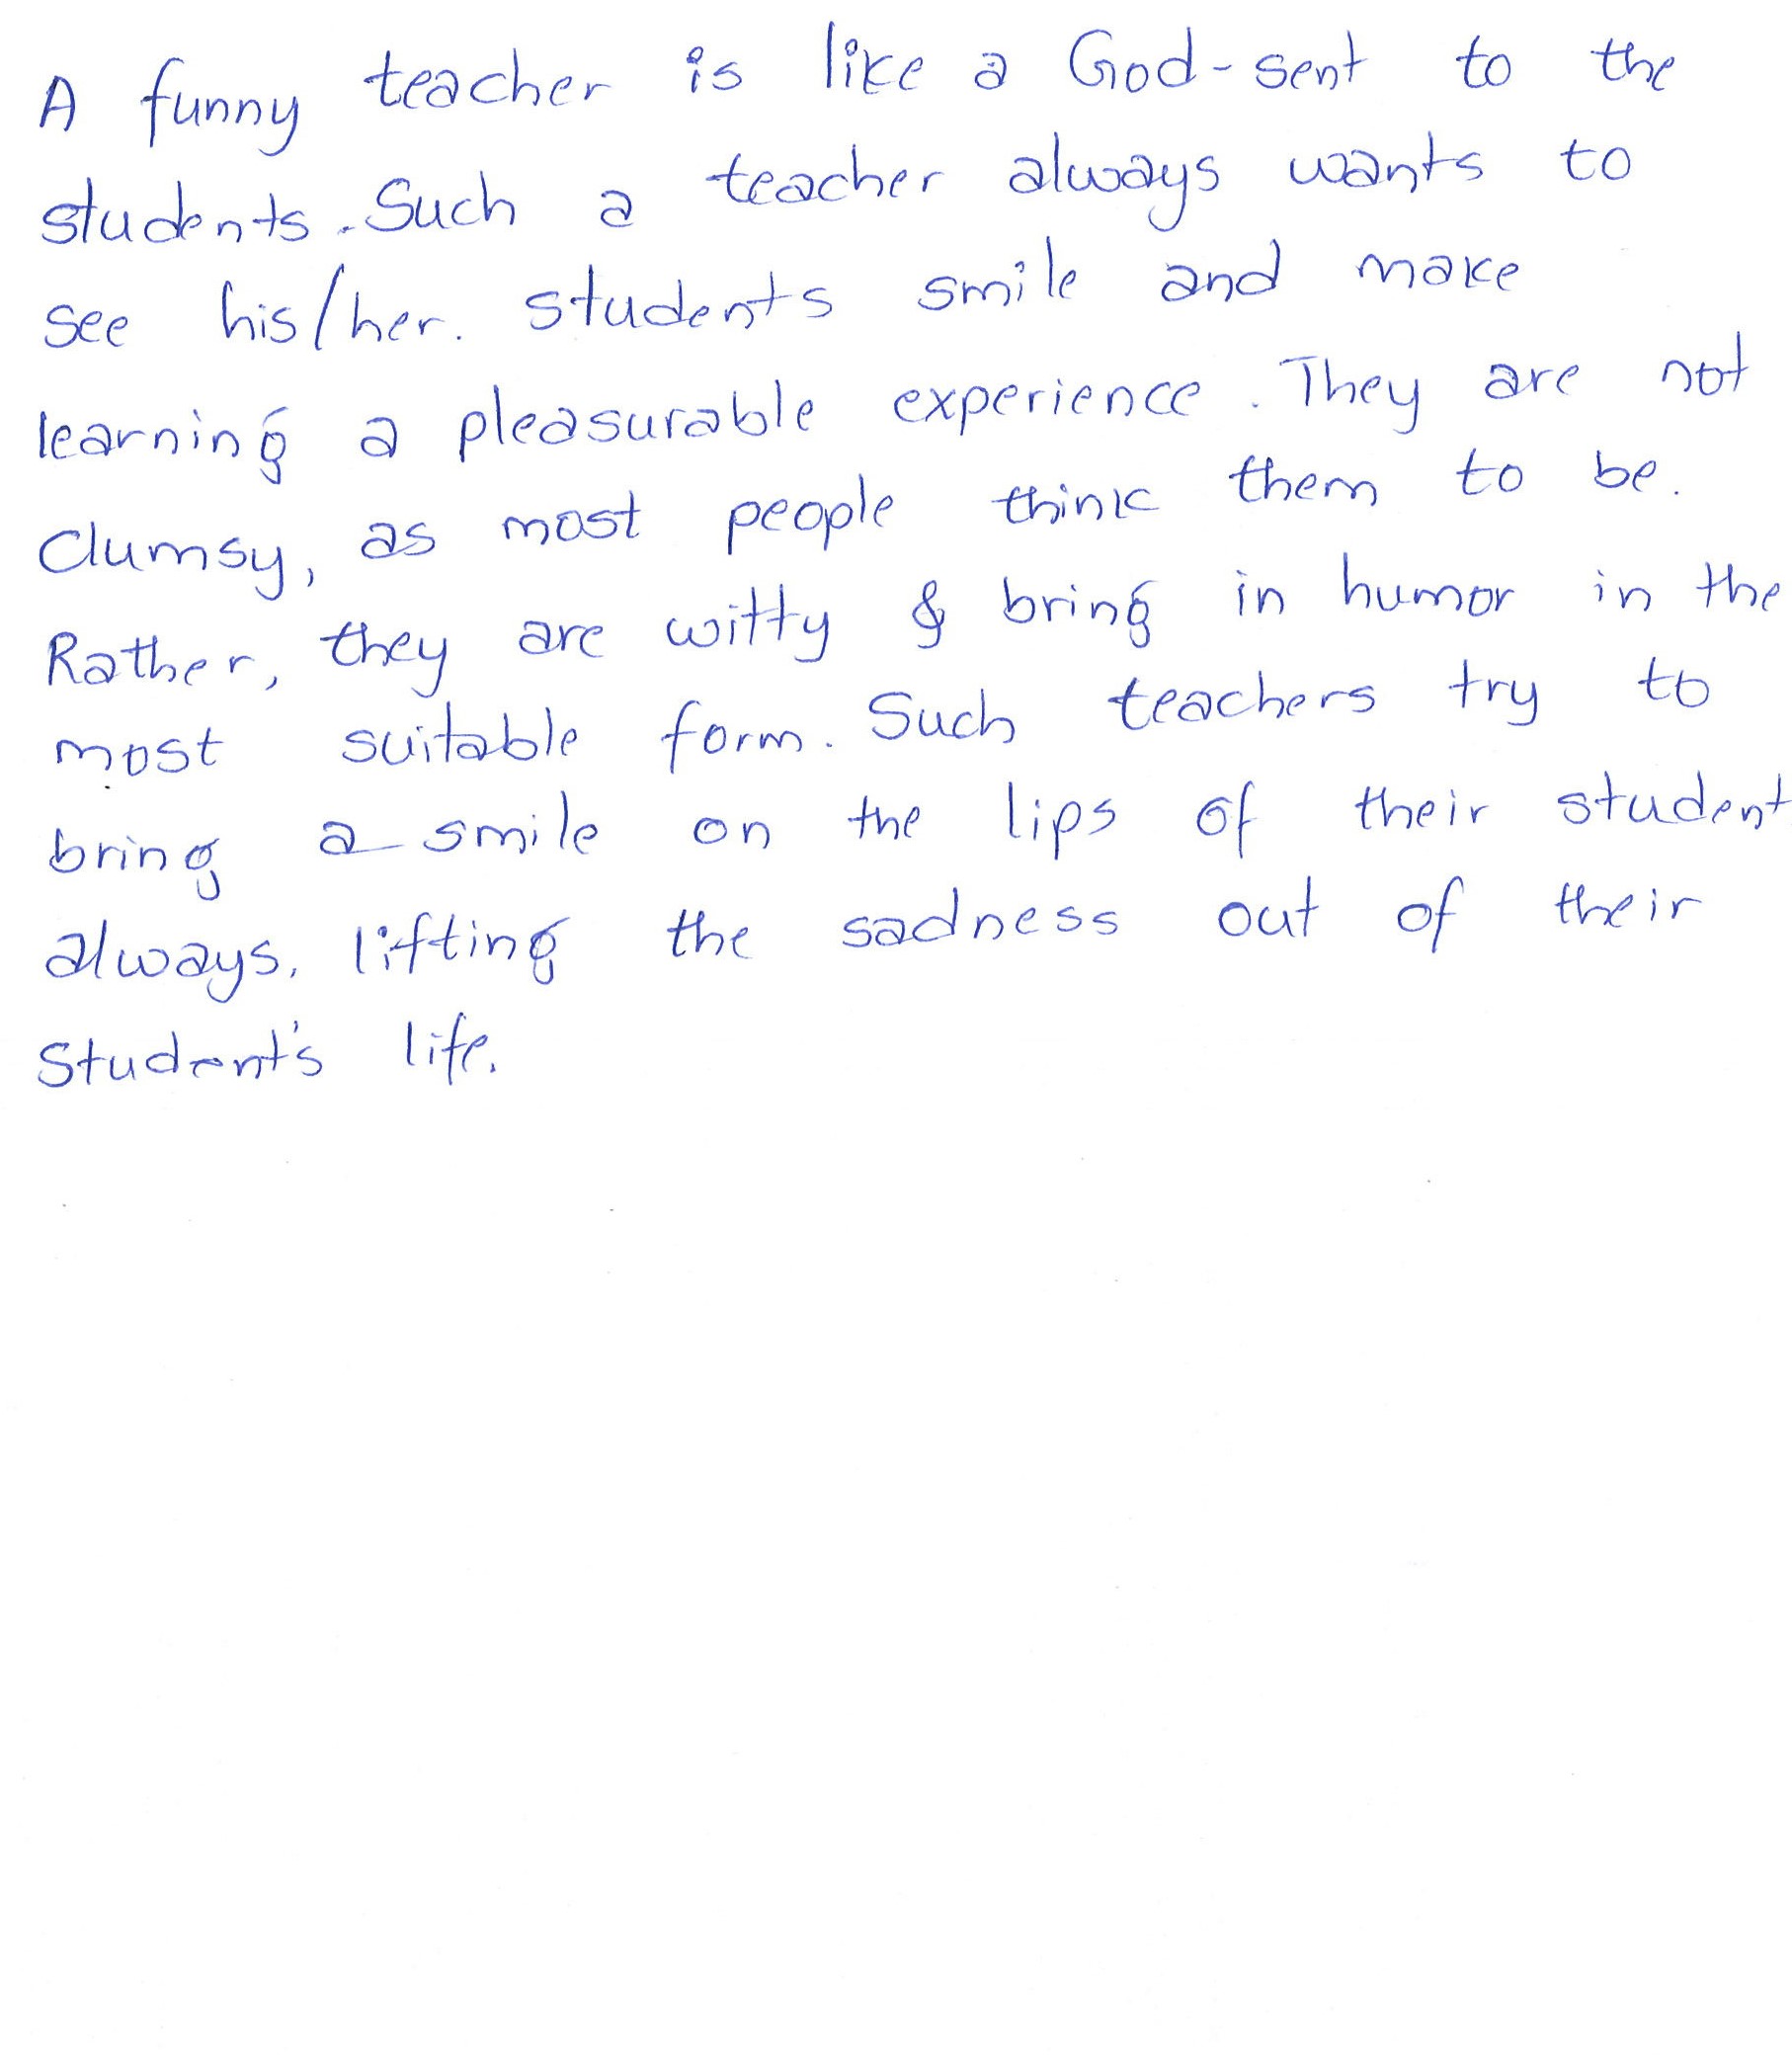 A funny teacher is like a God-sent to the
students. Such a teacher always wants to
see his/her. students smile and make
learning a pleasurable experience. They are not
Clumsy, as most people think them to be.
Rather, they are witty & bring in humor in the
most suitable form. Such teachers try to
bring a smile on the lips of their student
always. lifting the sadness out of their
Student's life.